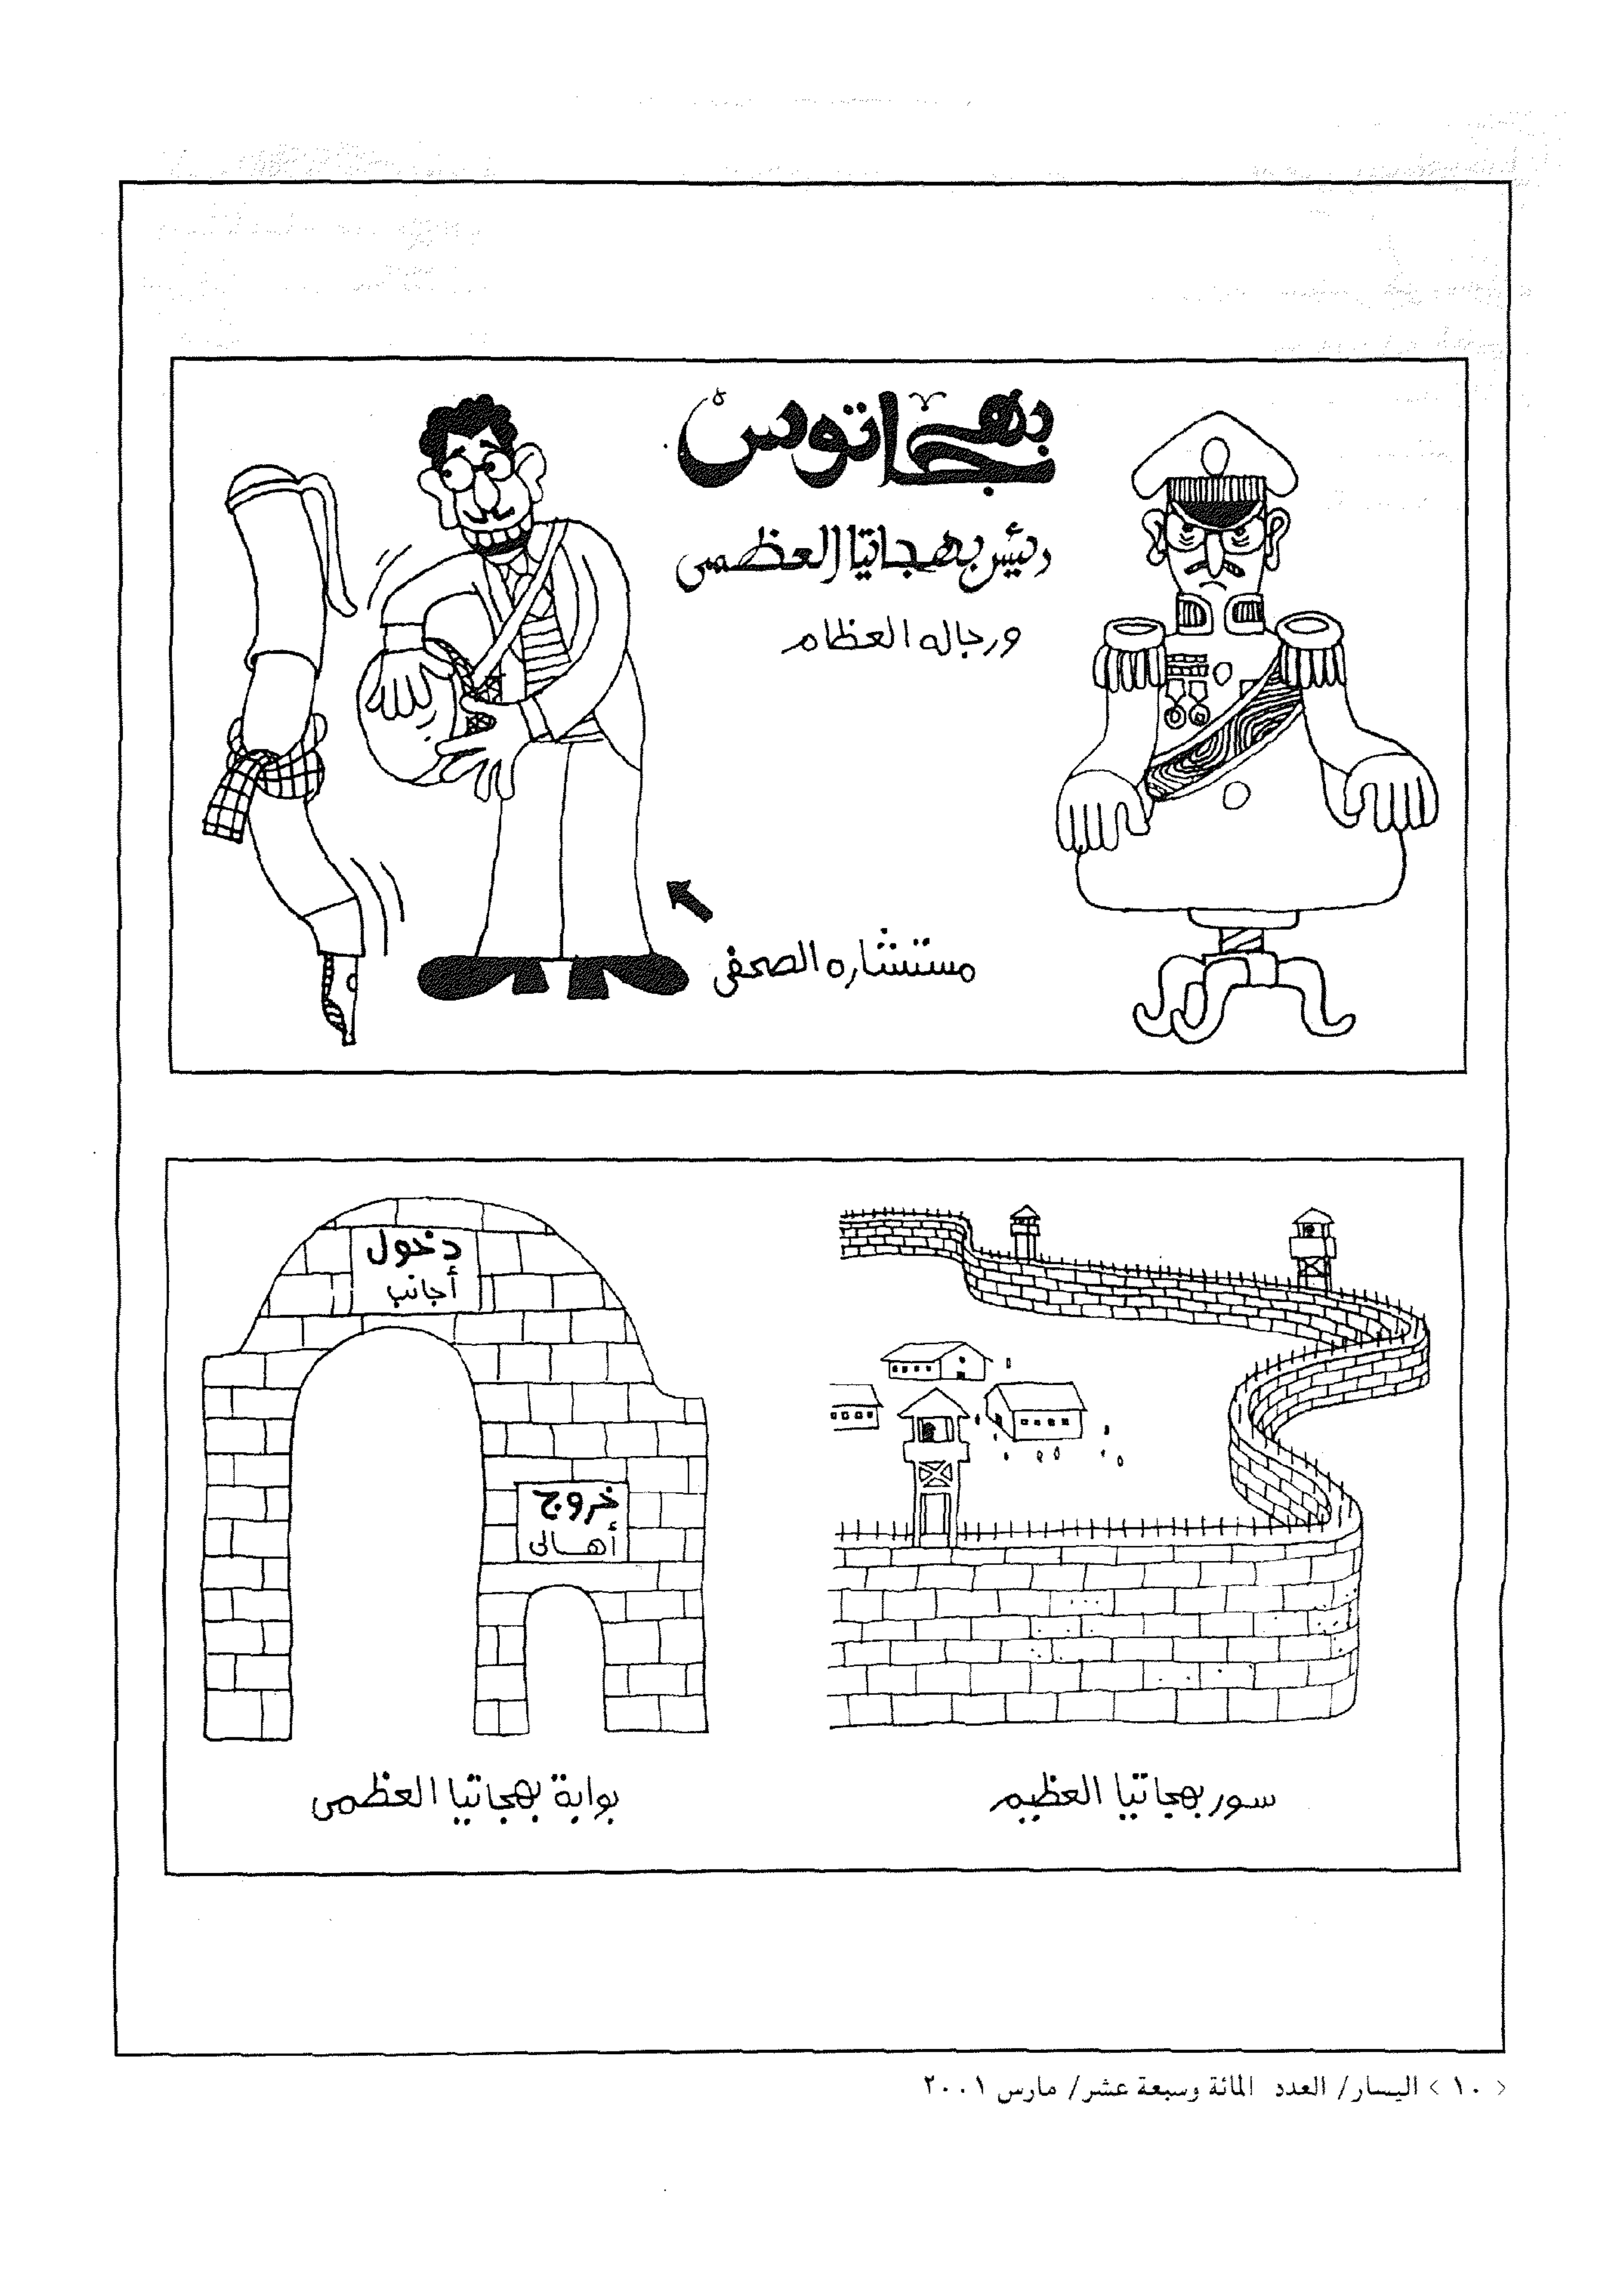 بهجاتوس
رئيس بهجاتيا العظمى
ورجاله العظام
مستشاره الصحفى
دخول
أجانب
خروج
أهالى
سور بهجاتيا العظيم
بوابة بهجاتيا العظمى
< ١٠ > اليسار/ العدد المائة وسبعة عشر/ مارس ٢٠٠١